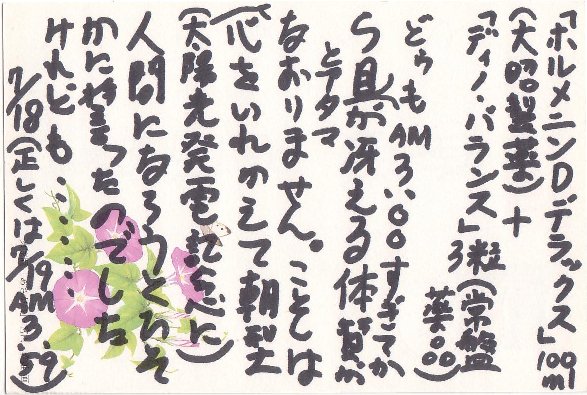 「ホルメニンDデラックス」100ml
(大昭製薬)+
「ディノ・バランス」3粒(常盤
薬〇〇)
どうもAM3:00すぎてか
ら目とアタマが冴える体質が
なおりません。ことしは
(心をいれかえて朝型
(太陽光発電記念に)
人間になろうとひそ
かに誓ったのでした
けれども・・・・・・
7/18(正しくは7/19 AM3:59)